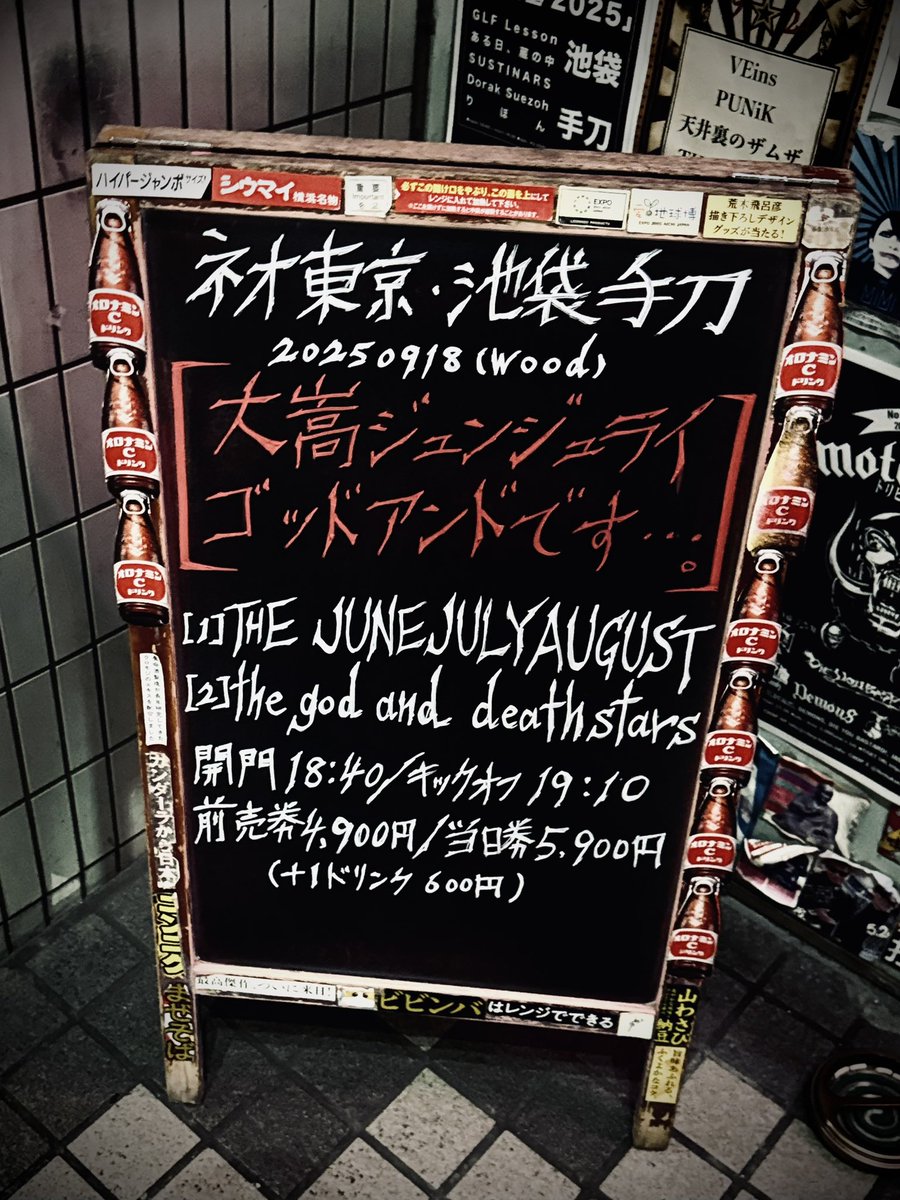 2025」
GLF Lesson
ある日、墓の中
SUSTINARS
Dorak Suezoh
りほん
池袋
手刀
VEins
PUNiK
天井裏のザムザ
ハイパージャンボサイズ!
シウマイ 横浜名物
重要
Important
必ずこの開け口をやぶり、この面を上にして
レンジに入れて加熱して下さい。
EXPO
LICENSED PRODUCTS
愛・地球博
EXPO 2005 AICHI JAPAN
荒木飛呂彦
描き下ろしデザイン
グッズが当たる!
ネオ東京・池袋手刀
20250918(wood)
[大嵩ジュンジュライ
ゴッドアンドです…。]
[1]THE JUNEJULYAUGUST
[2]the god and death stars
開門18:40/キックオフ 19:10
前売券4,900円/当日券5,900円
(+1ドリンク 600円)
オロナミン
C
ドリンク
オロナミン
C
ドリンク
オロナミン
C
ドリンク
オロナミン
C
ドリンク
オロナミン
C
ドリンク
オロナミン
C
ドリンク
オロナミン
C
ドリンク
オロナミン
C
ドリンク
オロナミン
C
ドリンク
ガンダーラから日本
まぜそば
最高傑作、ついに来日!
ビビンバはレンジでできる
山わさび
納豆
旨味あふれる
Demons
5.2